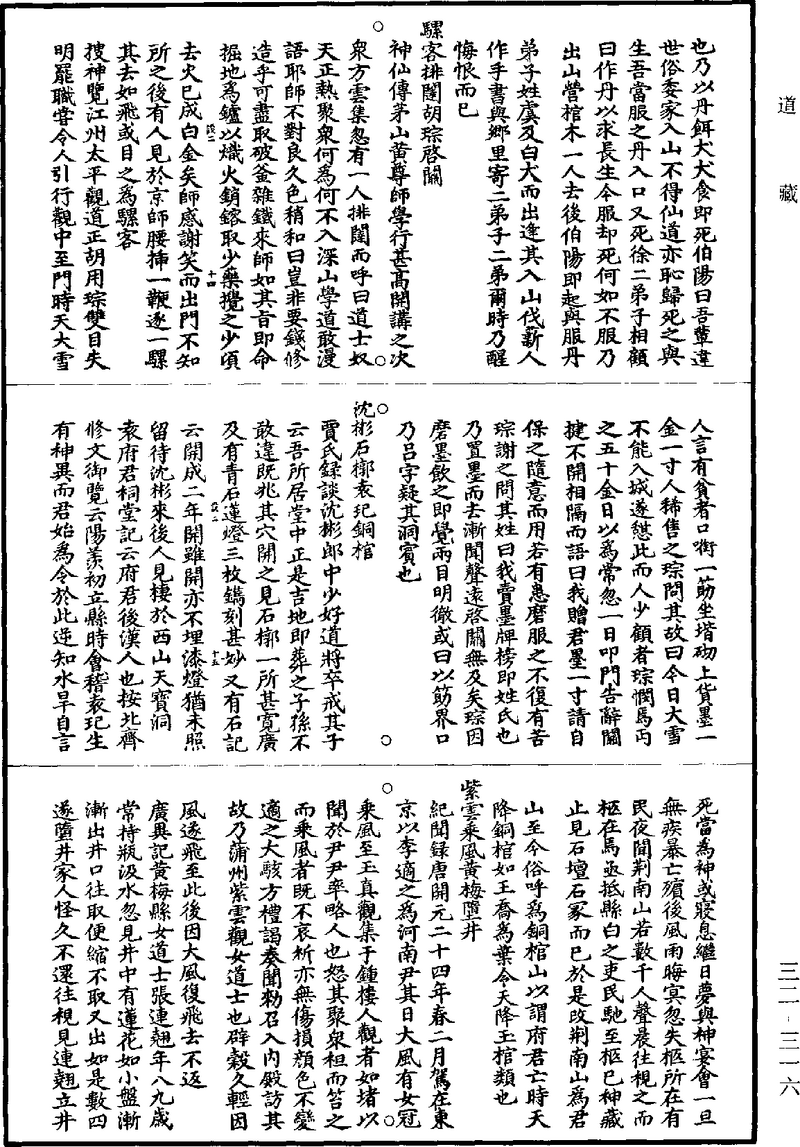 道藏
也乃以丹餌犬犬食即死伯陽曰吾輩違
世俗委家入山不得仙道亦恥歸死之與
生吾當服之丹入口又死徐二弟子相顧
曰作丹以求長生今服却死何如不服乃
出山營棺木一人去後伯陽即起與服丹
弟子姓虞及白犬而出逢其入山伐薪人
作手書與鄉里寄二弟子二弟爾時乃醒
悔恨而已
騾客排闥胡琮啓關
神仙傳茅山黄尊師學行甚高開講之次
衆方雲集忽有一人排闥而呼曰道士奴
天正熱聚衆何為何不入深山學道敢漫
語耶師不對良久色稍和曰豈非要錢修
造乎可盡取破釜雜鐵來師如其旨即命
掘地為鑪以熾火銷鎔取少藥攪之少頃
去火已成白金矣師感謝笑而出門不知
所之後有人見於京師腰插一鞭逐一騾
其去如飛或目之為騾客
搜神覽江州太平觀道正胡用琮雙目失
明罷職嘗令人引行觀中至門時天大雪
人言有貧者口銜一筯坐堦砌上貨墨一
金一寸人稀售之琮問其故曰今日大雪
不能入城遂憇此而人少顧者琮憫焉丐
之五十金日以為常忽一日叩門告辭關
揵不開相隔而語曰我贈君墨一寸請自
保之隨意而用若有患磨服之不復有苦
琮謝之問其姓曰我賣墨牌榜即姓氏也
乃置墨而去漸聞聲遠啓關無及矣琮因
磨墨飲之即覺兩目明徹或曰以筯界口
乃吕字疑其洞賓也
沈彬石槨袁玘銅棺
賈氏録談沈彬郎中少好道將卒戒其子
云吾所居堂中正是吉地即葬之子孫不
敢違既兆其穴開之見石槨一所甚寬廣
及有青石蓮燈三枚鐫刻甚妙又有石記
云開成二年開雖開亦不埋漆燈猶未照
留待沈彬來後人見棲於西山天寶洞
袁府君祠堂記云府君後漢人也按北齊
修文御覽云陽羨初立縣時會稽袁玘生
有神異而君始為令於此逆知水旱自言
死當為神或寢息繼日夢與神宴會一旦
無疾暴亡殯後風雨晦冥忽失柩所在有
民夜聞荆南山若數千人聲晨往視之而
柩在焉亟抵縣白之吏民馳至柩已神藏
止見石壇石冢而已於是改荆南山為君
山至今俗呼為銅棺山以謂府君亡時天
降銅棺如王喬為葉令天降玉棺類也
紫雲乘風黄梅墮井
紀聞録唐開元二十四年春二月駕在東
京以李適之為河南尹其日大風有女冠
乘風至玉真觀集于鍾樓人觀者如堵以
聞於尹尹率略人也怒其聚衆袒而笞之
而乘風者既不哀祈亦無傷損顔色不變
適之大駭方禮謁奏聞勑召入內殿訪其
故乃蒲州紫雲觀女道士也辟穀久輕因
風遂飛至此後因大風復飛去不返
廣異記黄梅縣女道士張連翹年八九歲
常持瓶汲水忽見井中有蓮花如小盤漸
漸出井口往取便縮不取又出如是數四
遂墮井家人怪久不還往視見連翹立井
三二-三一六